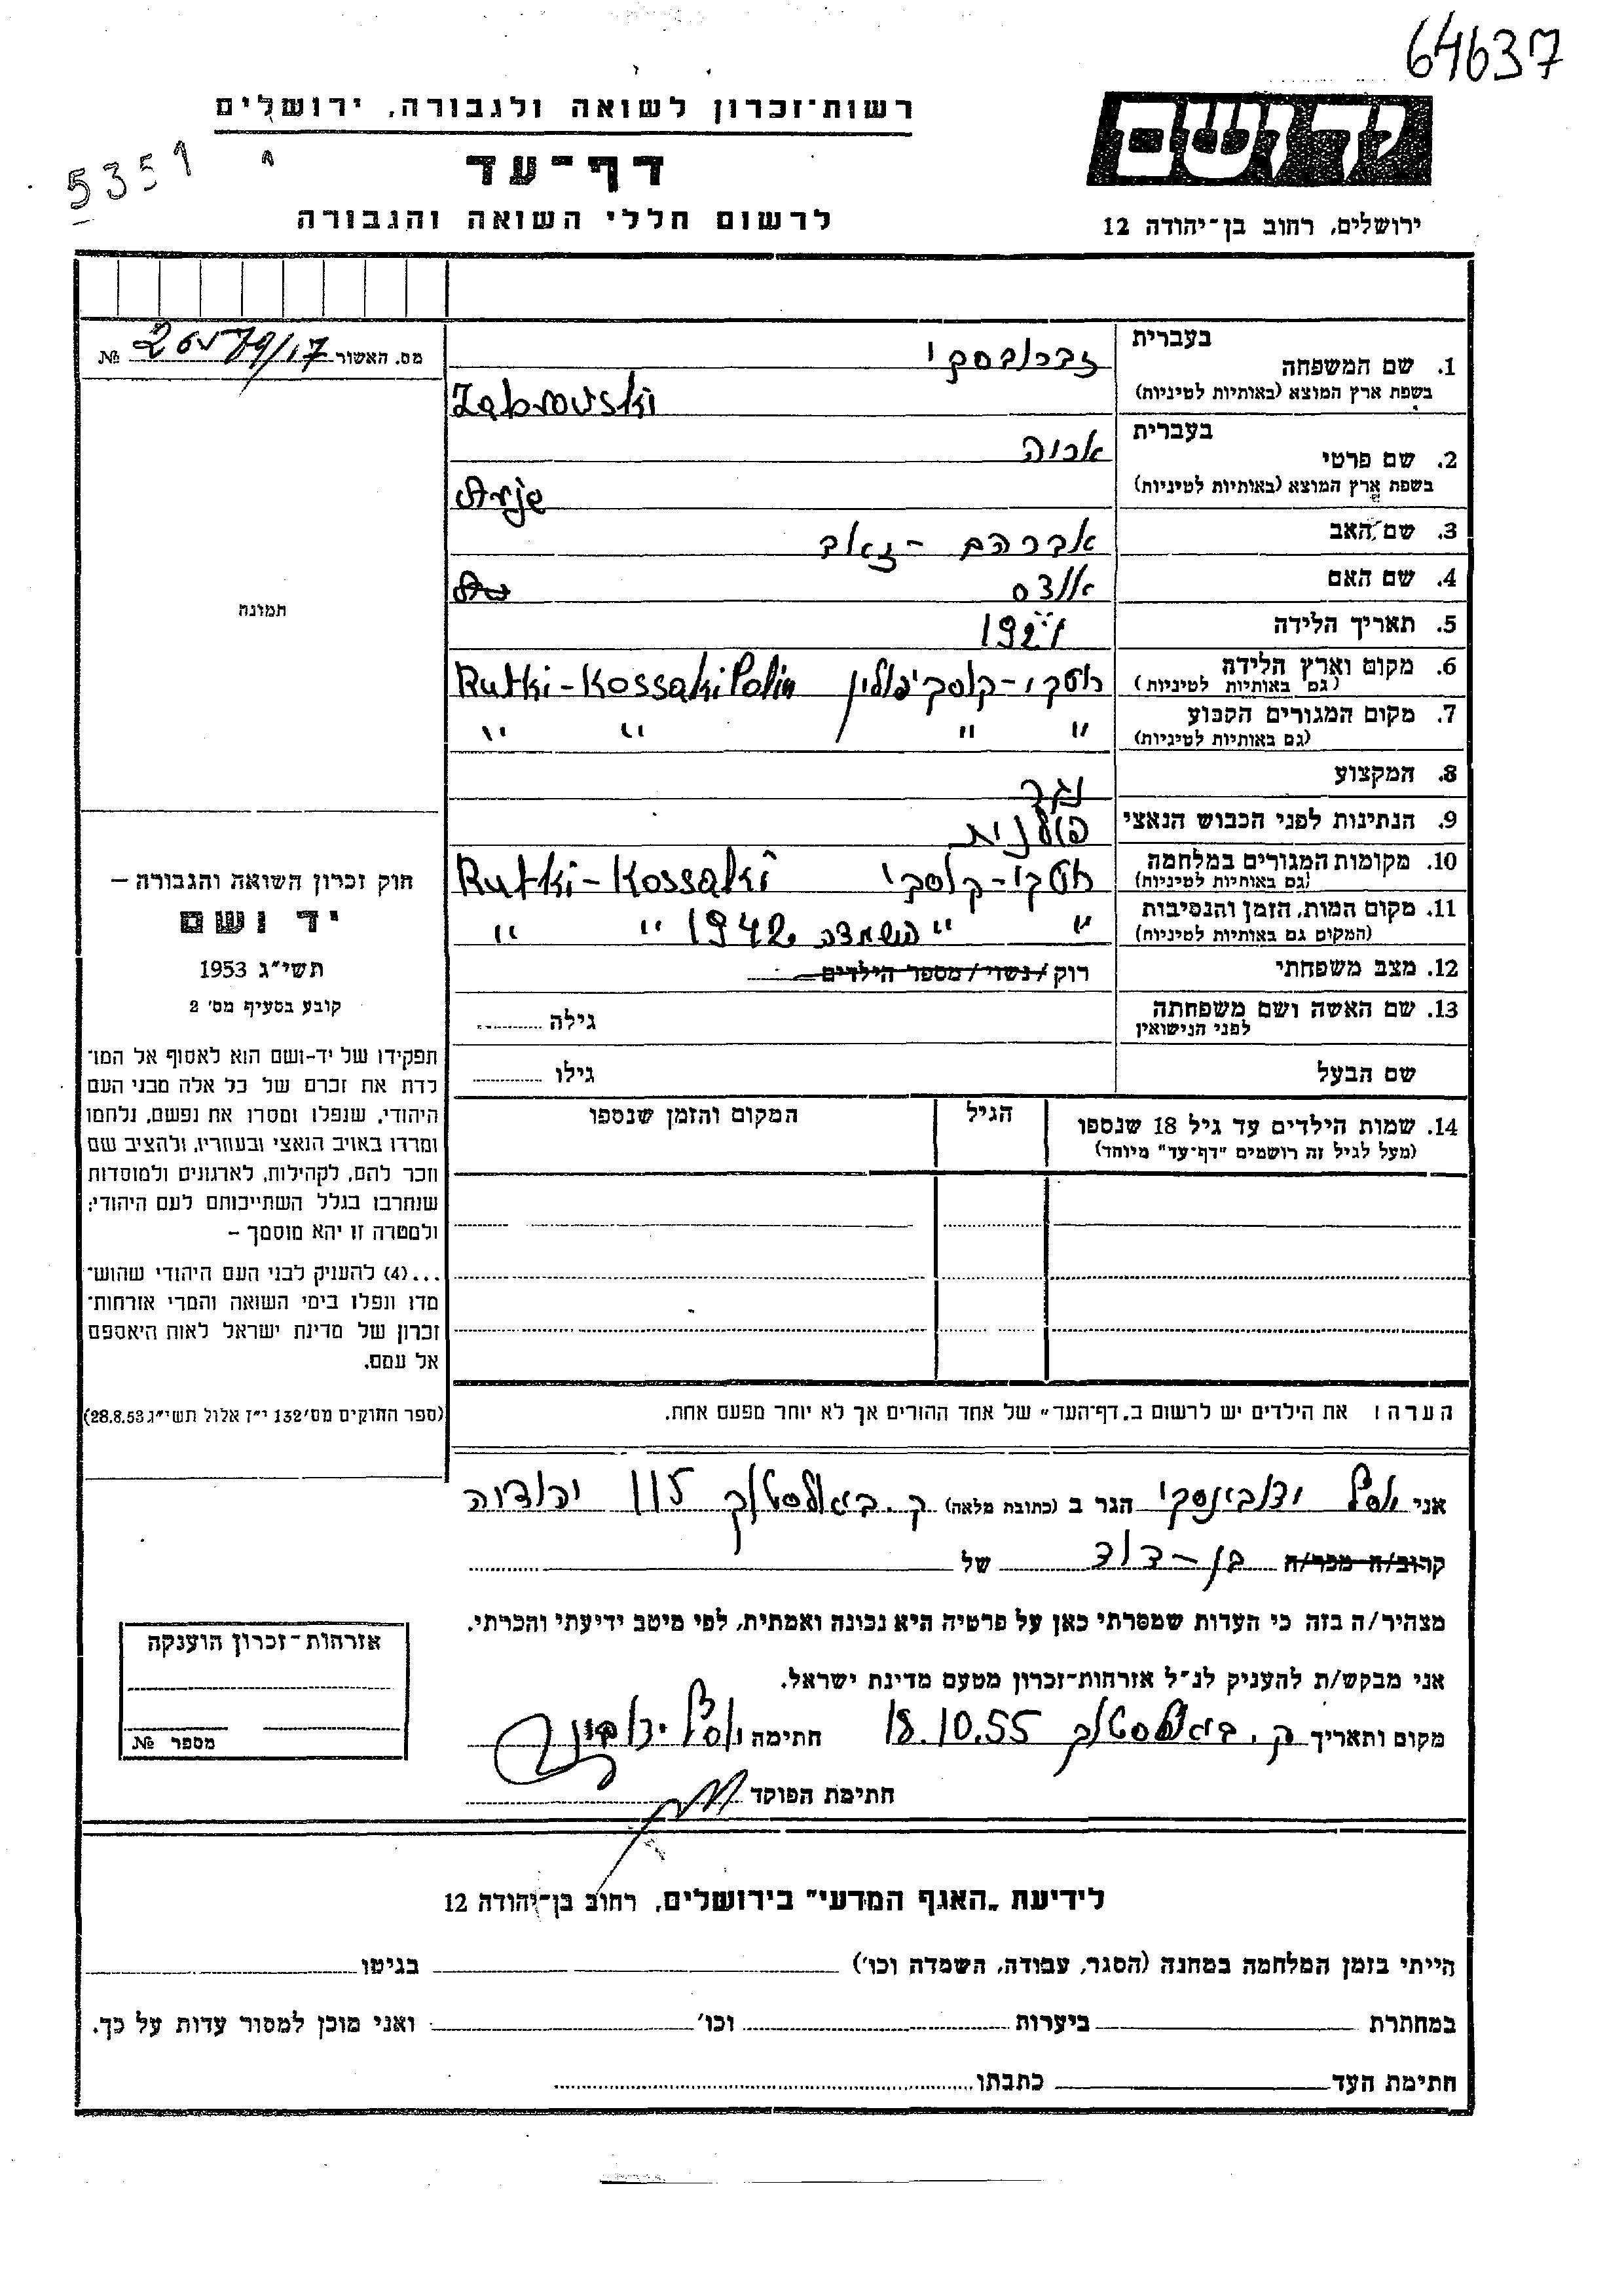 64637
רשות־זכרון לשואה ולגבורה, ירושלים
5351
דף־עד
לרשום חללי השואה והגבורה
יד ושם
ירושלים, רחוב בן־יהודה 12
מס. האשור 17/ №
1. שם המשפחה
בעברית זברובסקי
בשפת ארץ המוצא (באותיות לטיניות) Zabrovski
2. שם פרטי
בעברית אריה
בשפת ארץ המוצא (באותיות לטיניות) Arje
3. שם האב אברהם - זאב
4. שם האם
5. תאריך הלידה 1921
6. מקום וארץ הלידה רוטקי-קוסקי פולין Rutki-Kossaki Polin
(גם באותיות לטיניות)
7. מקום המגורים הקבוע " " " "
(גם באותיות לטיניות)
8. המקצוע נגר
9. הנתינות לפני הכבוש הנאצי פולנית
10. מקומות המגורים במלחמה רוטקי-קוסקי Rutki-Kossaki
(גם באותיות לטיניות)
11. מקום המות, הזמן והנסיבות " " השמדה 1942 " "
(המקום גם באותיות לטיניות)
12. מצב משפחתי רוק / נשוי / מספר הילדים
13. שם האשה ושם משפחתה גילה
לפני הנישואין
שם הבעל גילו
14. שמות הילדים עד גיל 18 שנספו הגיל המקום והזמן שנספו
(מעל לגיל זה רושמים "דף־עד" מיוחד)
הערה: את הילדים יש לרשום ב„דף־העד" של אחד ההורים אך לא יותר מפעם אחת.
תמונה
חוק זכרון השואה והגבורה –
יד ושם
תשי"ג 1953
קובע בסעיף מס' 2
תפקידו של יד-ושם הוא לאסוף אל המו־
לדת את זכרם של כל אלה מבני העם
היהודי, שנפלו ומסרו את נפשם, נלחמו
ומרדו באויב הנאצי ובעוזריו, ולהציב שם
וזכר להם, לקהילות, לארגונים ולמוסדות
שנחרבו בגלל השתייכותם לעם היהודי;
ולמטרה זו יהא מוסמך –
...(4) להעניק לבני העם היהודי שהוש־
מדו ונפלו בימי השואה והמרי אזרחות־
זכרון של מדינת ישראל לאות היאספם
אל עמם.
(ספר החוקים מס' 132 י"ז אלול תשי"ג 28.8.53)
אני יוסף הגר ב (כתובת מלאה) ק. ביאליסטוק 115 יהודיה
קרוב/ה מכר/ה בן-דוד של
מצהיר/ה בזה כי העדות שמסרתי כאן על פרטיה היא נכונה ואמתית, לפי מיטב ידיעתי והכרתי.
אני מבקש/ת להעניק לנ"ל אזרחות־זכרון מטעם מדינת ישראל.
מקום ותאריך ק. ביאליסטוק 18.10.55 חתימה יוסף
חתימת הפוקד
אזרחות־זכרון הוענקה
מספר №
לידיעת „האגף המדעי" בירושלים, רחוב בן־יהודה 12
הייתי בזמן המלחמה במחנה (הסגר, עבודה, השמדה וכו') בגיטו
במחתרת ביערות וכו' ואני מוכן למסור עדות על כך.
חתימת העד כתבתו